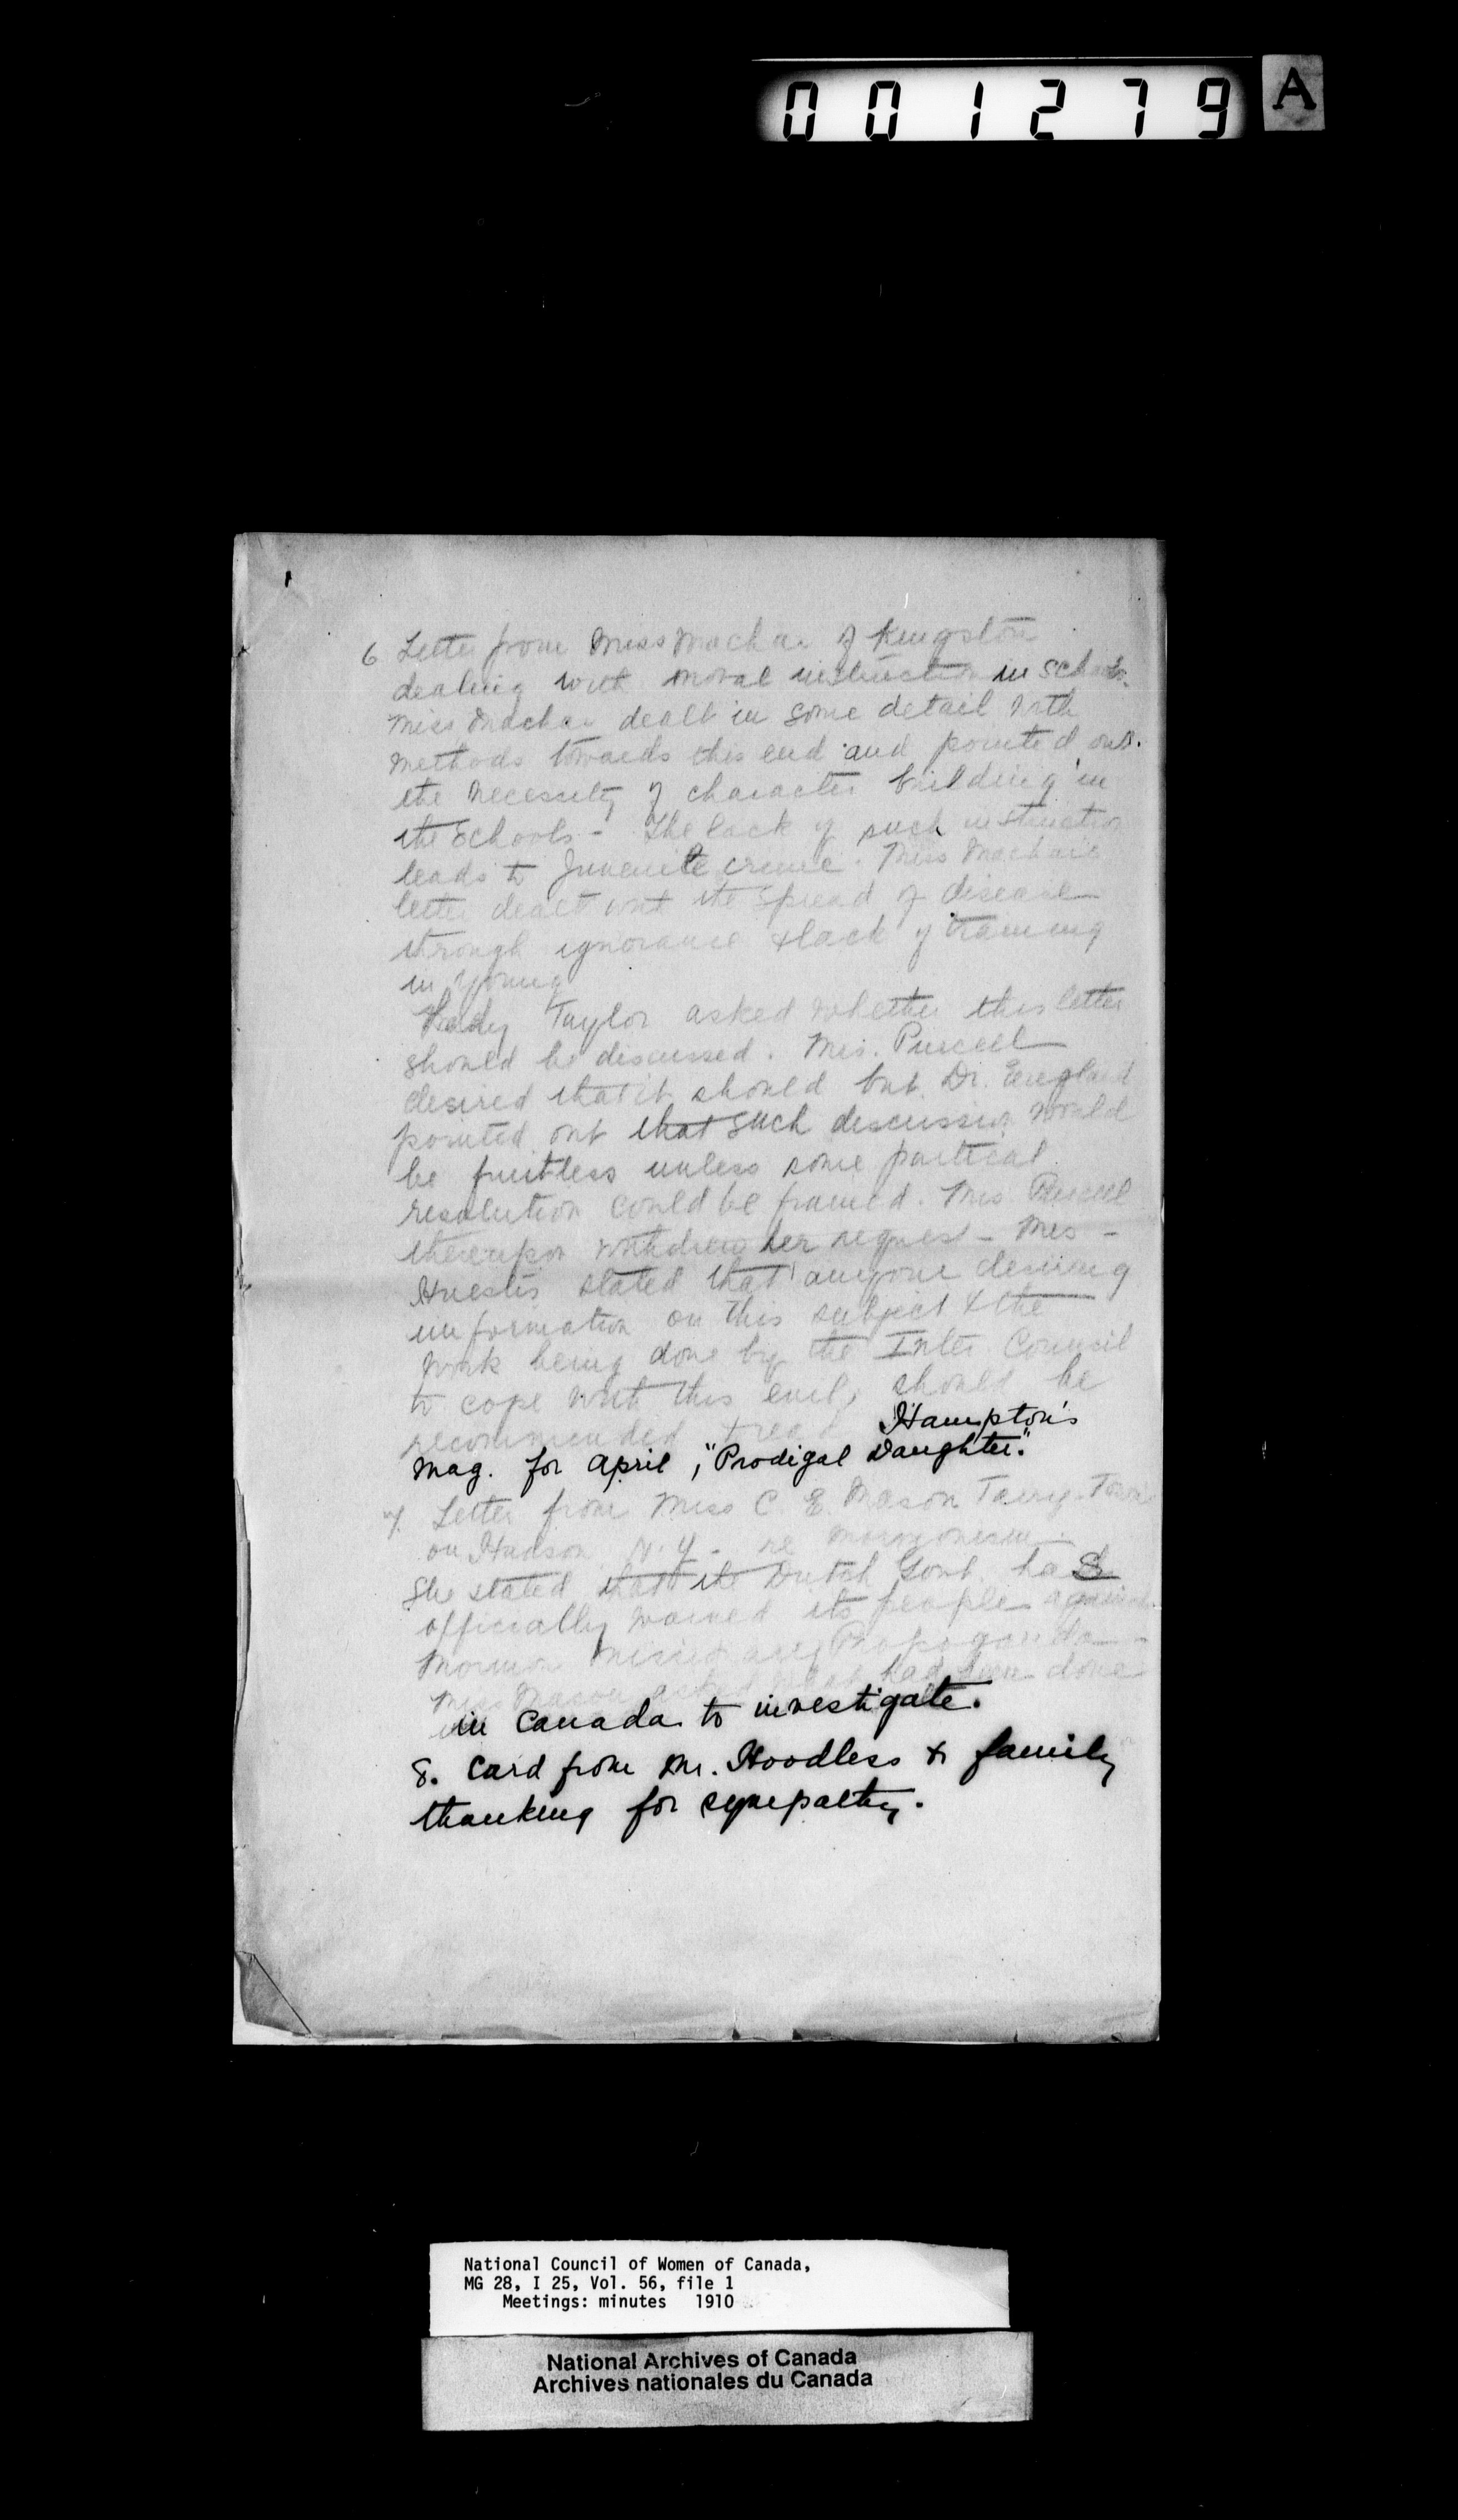 001279 A
6 Letter from Miss Machar of Kingston
dealing with moral instruction in schools.
Miss Machar dealt in some detail with
methods towards this end and pointed out
the necessity of character building in
the Schools - The lack of such instruction
leads to Juvenile crime. Miss Machar's
letter dealt with the spread of disease
through ignorance & lack of training
in young
Lady Taylor asked whether this letter
should be discussed. Mrs. Purcell
desired that it should but Dr. England
pointed out that such discussion would
be fruitless unless some partical
resolution could be framed. Mrs. Purcell
thereupon withdrew her request - Mrs -
Huestis stated that anyone desiring
information on this subject & the
work being done by the Inter. Council
to cope with this evil, should be
recommended to read Hampton's
Mag. for April, "Prodigal Daughter."
7. Letter from Miss C. E. Mason Tarry-Town
on Hudson N.Y. - re Mormonism -
She stated that the Dutch Govt. has
officially warned its people against
Mormon missionary Propoganda -
Miss Mason asked what had been done
in Canada to investigate.
8. Card from Mr. Hoodless & family
thanking for sympathy.
National Council of Women of Canada,
MG 28, I 25, Vol. 56, file 1
Meetings: minutes 1910
National Archives of Canada
Archives nationales du Canada